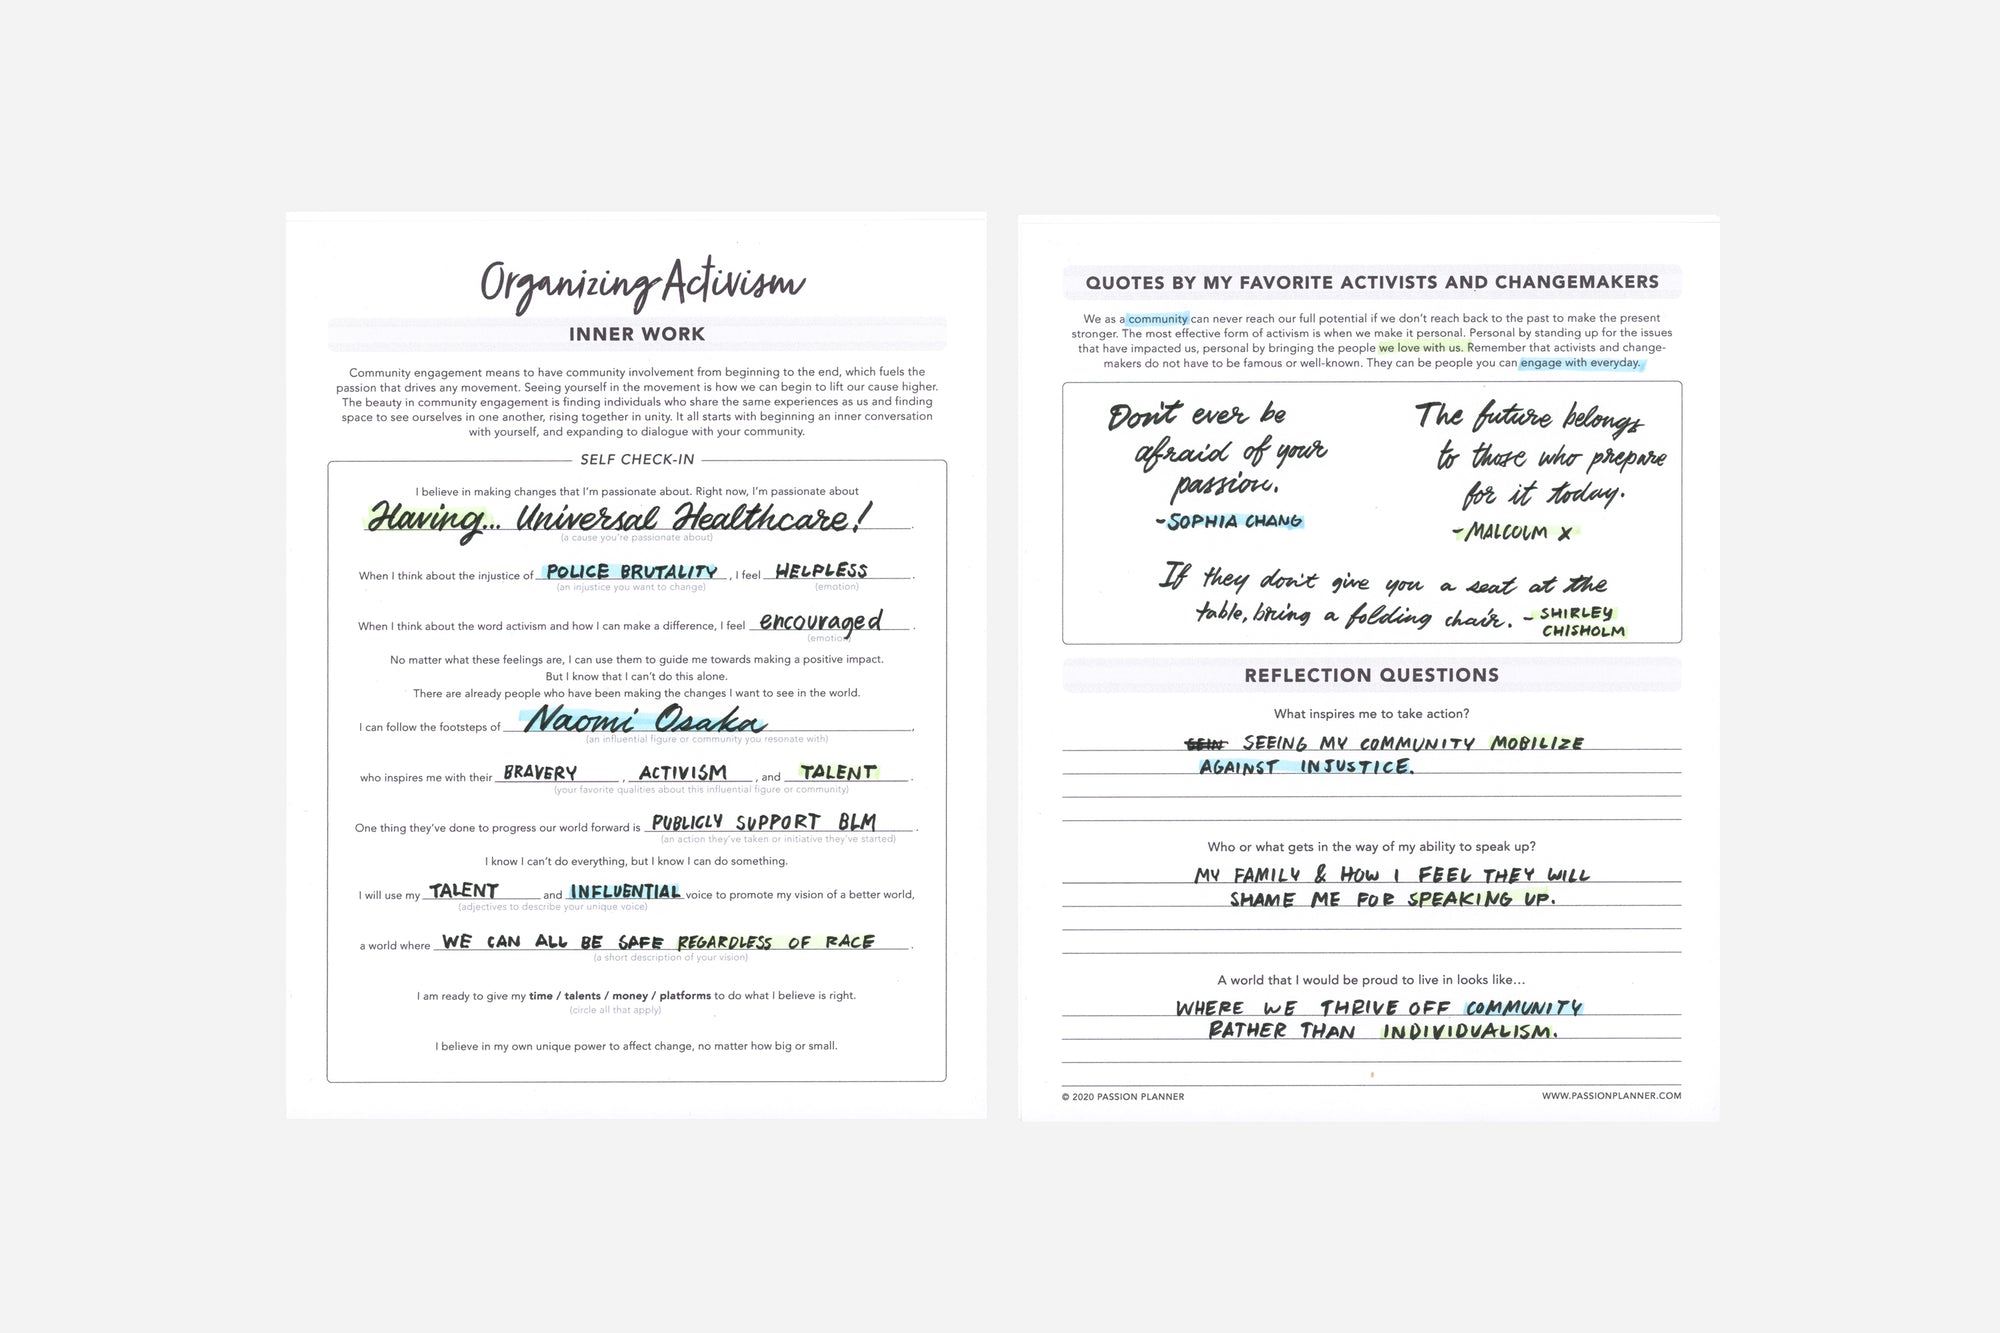 Organizing Activism
INNER WORK
Community engagement means to have community involvement from beginning to the end, which fuels the
passion that drives any movement. Seeing yourself in the movement is how we can begin to lift our cause higher.
The beauty in community engagement is finding individuals who share the same experiences as us and finding
space to see ourselves in one another, rising together in unity. It all starts with beginning an inner conversation
with yourself, and expanding to dialogue with your community.
SELF CHECK-IN
I believe in making changes that I'm passionate about. Right now, I'm passionate about
Having... Universal Healthcare! .
(a cause you're passionate about)
When I think about the injustice of POLICE BRUTALITY , I feel HELPLESS .
(an injustice you want to change) (emotion)
When I think about the word activism and how I can make a difference, I feel encouraged .
(emotion)
No matter what these feelings are, I can use them to guide me towards making a positive impact.
But I know that I can't do this alone.
There are already people who have been making the changes I want to see in the world.
I can follow the footsteps of Naomi Osaka ,
(an influential figure or community you resonate with)
who inspires me with their BRAVERY , ACTIVISM , and TALENT .
(your favorite qualities about this influential figure or community)
One thing they've done to progress our world forward is PUBLICLY SUPPORT BLM .
(an action they've taken or initiative they've started)
I know I can't do everything, but I know I can do something.
I will use my TALENT and INFLUENTIAL voice to promote my vision of a better world,
(adjectives to describe your unique voice)
a world where WE CAN ALL BE SAFE REGARDLESS OF RACE .
(a short description of your vision)
I am ready to give my time / talents / money / platforms to do what I believe is right.
(circle all that apply)
I believe in my own unique power to affect change, no matter how big or small.
QUOTES BY MY FAVORITE ACTIVISTS AND CHANGEMAKERS
We as a community can never reach our full potential if we don't reach back to the past to make the present
stronger. The most effective form of activism is when we make it personal. Personal by standing up for the issues
that have impacted us, personal by bringing the people we love with us. Remember that activists and change-
makers do not have to be famous or well-known. They can be people you can engage with everyday.
Don't ever be
afraid of your
passion.
-SOPHIA CHANG
The future belongs
to those who prepare
for it today.
-MALCOLM X
If they don't give you a seat at the
table, bring a folding chair. - SHIRLEY
CHISHOLM
REFLECTION QUESTIONS
What inspires me to take action?
SEEING MY COMMUNITY MOBILIZE
AGAINST INJUSTICE.
Who or what gets in the way of my ability to speak up?
MY FAMILY & HOW I FEEL THEY WILL
SHAME ME FOR SPEAKING UP.
A world that I would be proud to live in looks like...
WHERE WE THRIVE OFF COMMUNITY
RATHER THAN INDIVIDUALISM.
© 2020 PASSION PLANNER
WWW.PASSIONPLANNER.COM